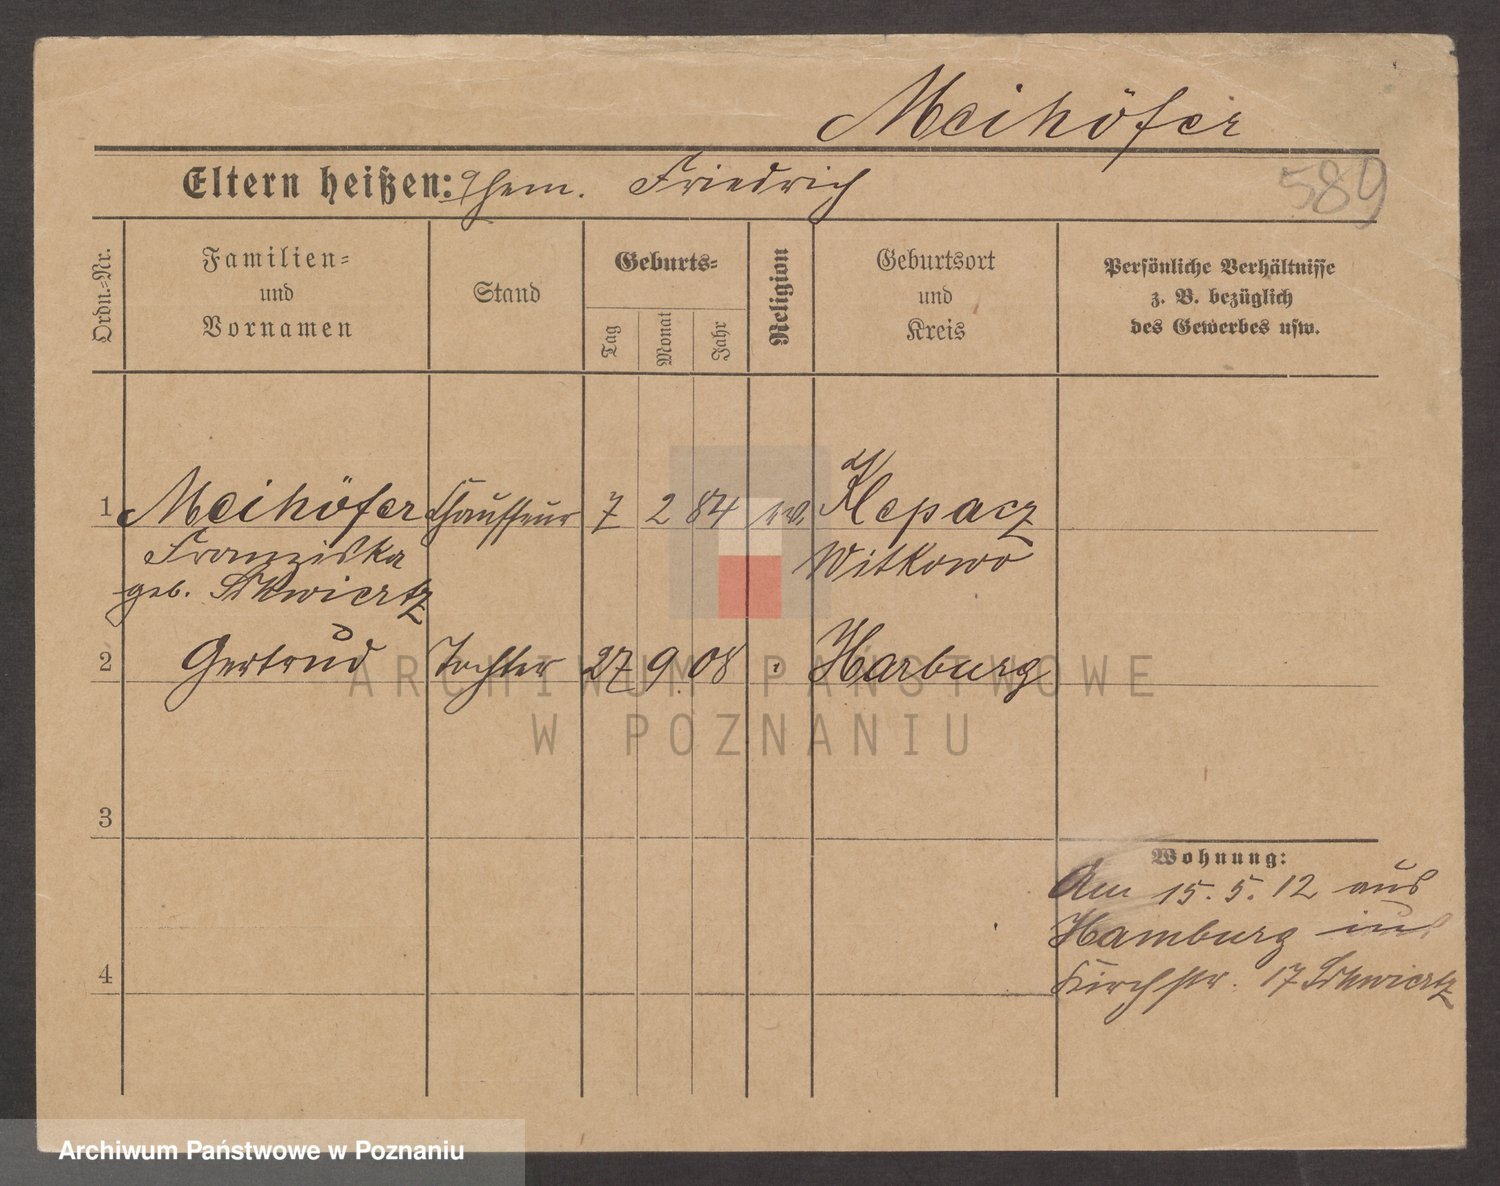 Meihöfer
Eltern heißen: Ehem. Friedrich
589
Ordn.-Nr.
Familien-
und
Vornamen
Stand
Geburts-
Tag
Monat
Jahr
Religion
Geburtsort
und
Kreis
Persönliche Verhältnisse
z. B. bezüglich
des Gewerbes usw.
1 Meihöfer Chauffeur 7 2 84 ev. Klepacz
Franziska Witkowo
geb. Skwiertz
2 Gertrud Tochter 27 9 08 Harburg
ARCHIWUM PAŃSTWOWE
W POZNANIU
3
Wohnung:
Am 15. 5. 12 aus
Hamburg
4 Kirchstr. 17 Skwiertz
Archiwum Państwowe w Poznaniu